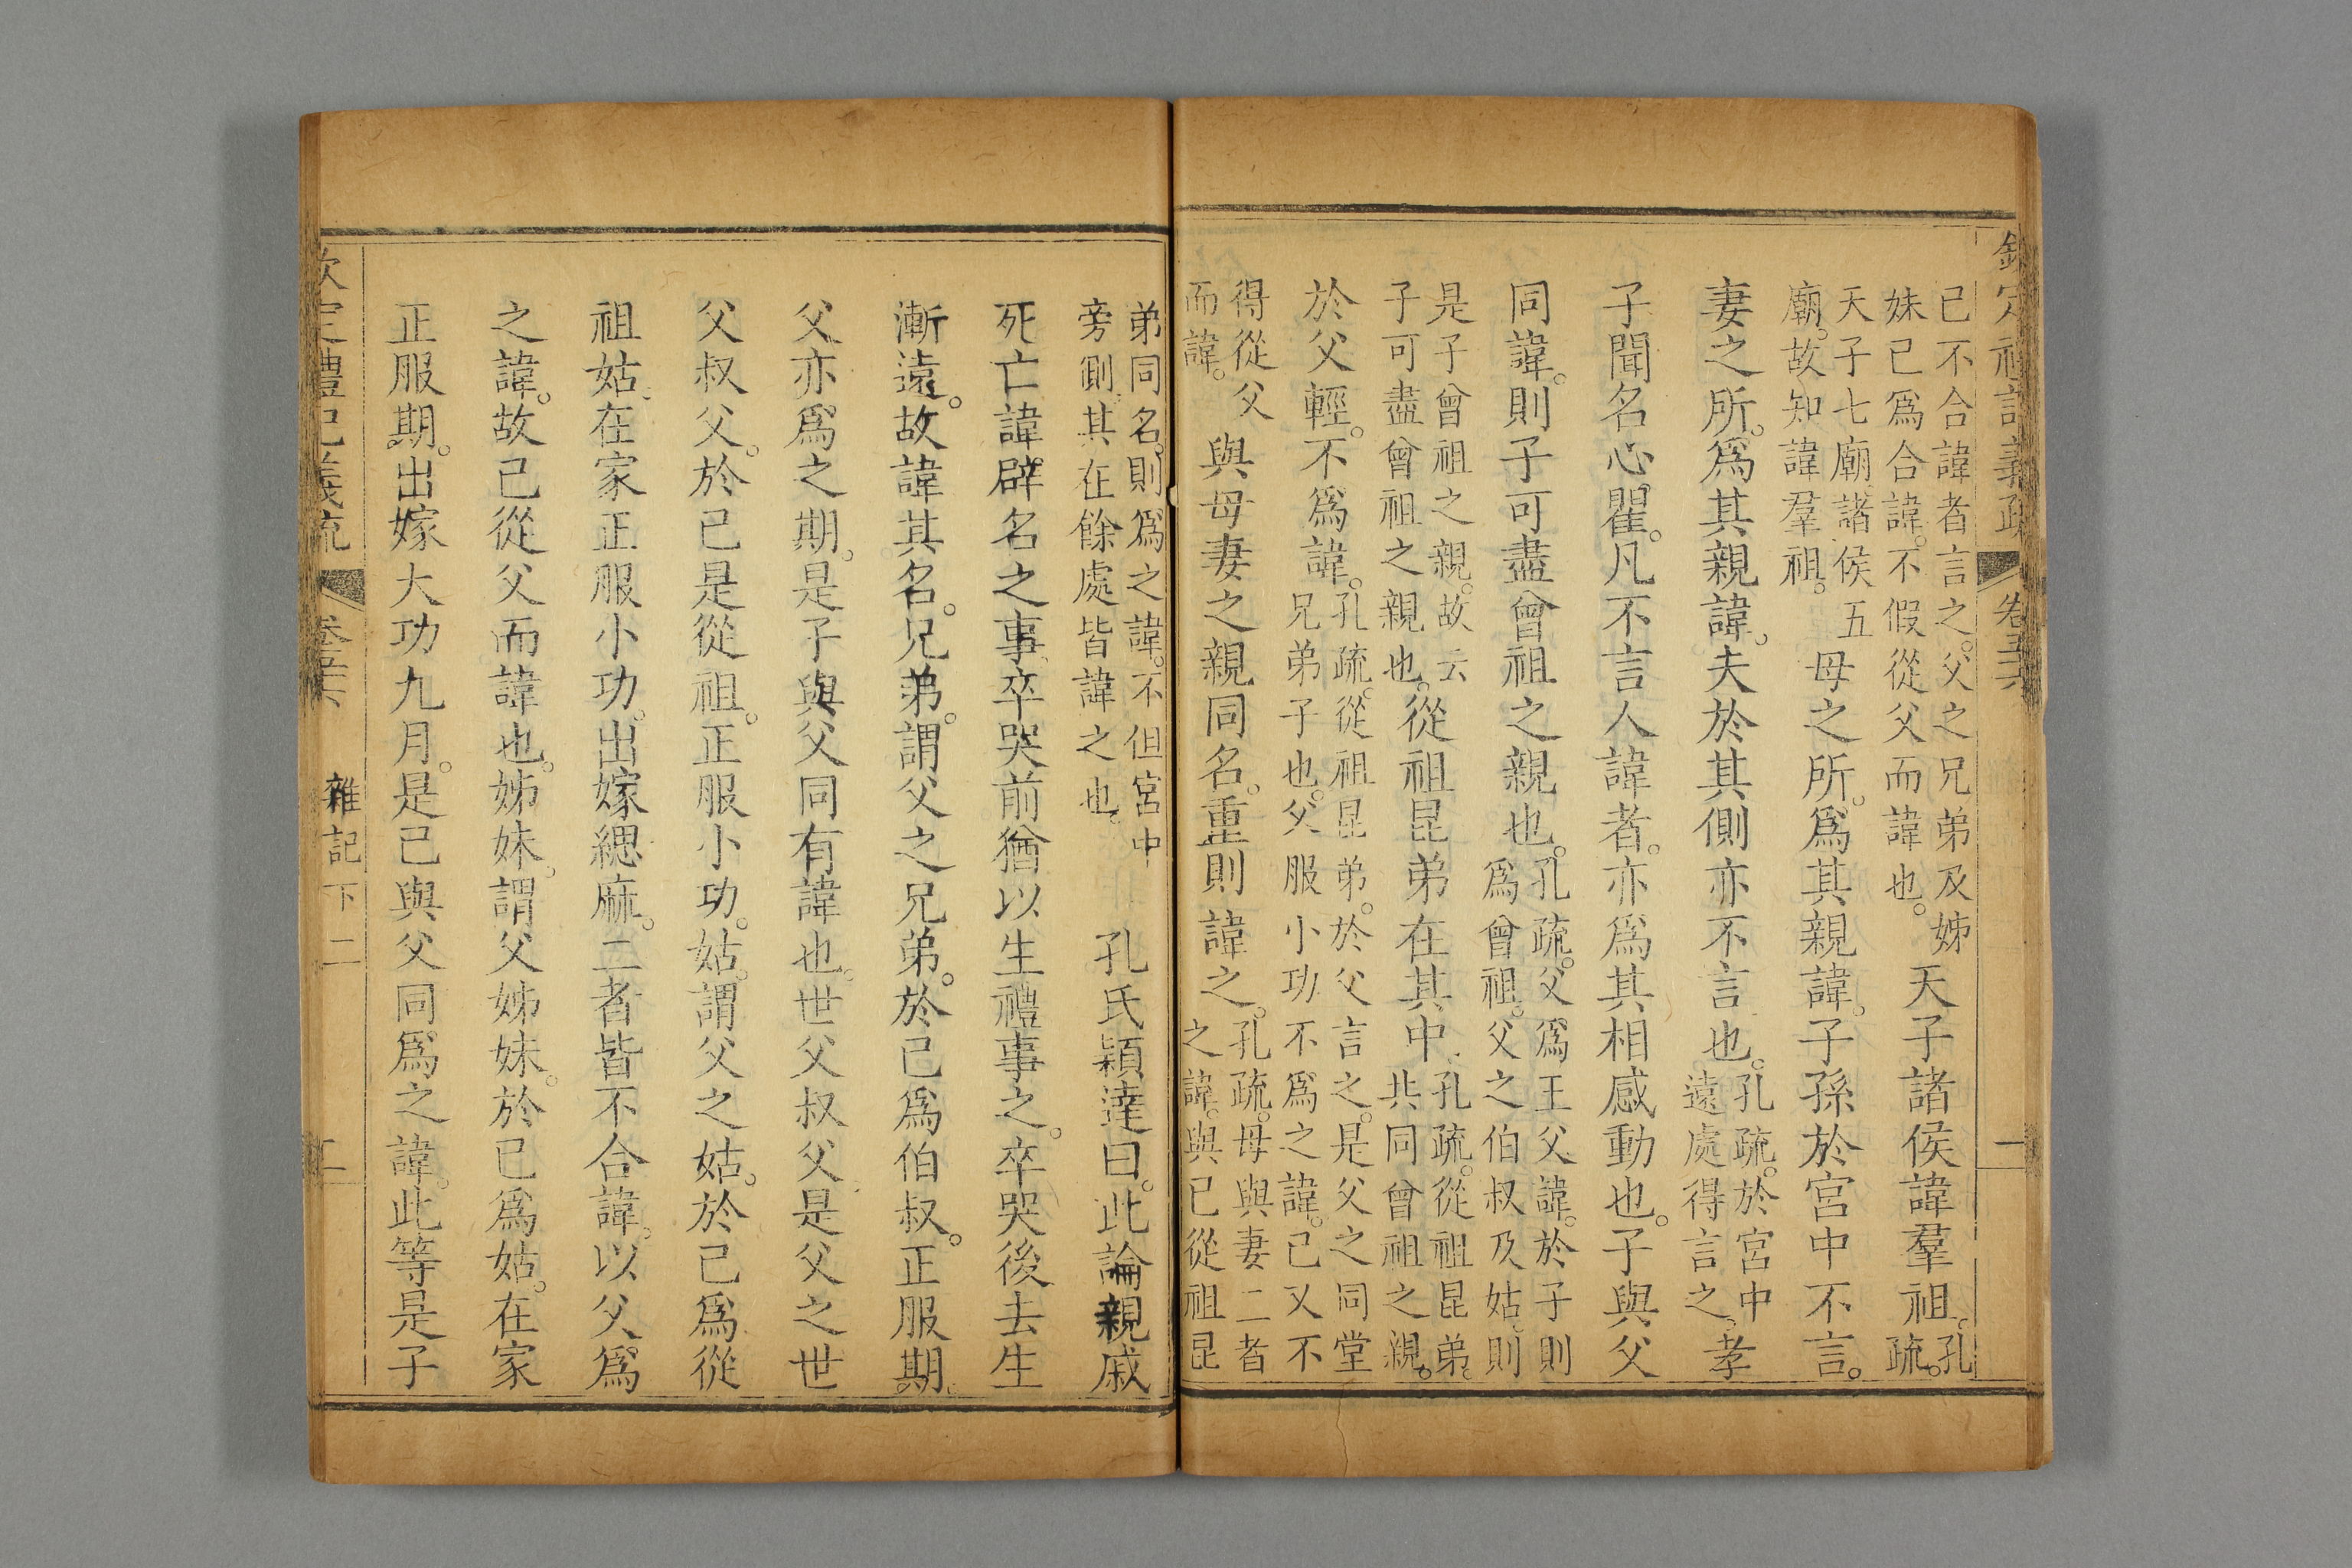 欽定禮記義疏 卷五十六 一
已不合諱者言之。父之兄弟及姊
妹已爲合諱。不假從父而諱也。
天子諸侯諱羣祖。
孔
疏。
天子七廟諸侯五
廟。故知諱羣祖。
母之所。爲其親諱。子孫於宮中不言。
妻之所。爲其親諱。夫於其側亦不言也。
孔疏。於宮中
遠處得言之。
孝
子聞名心瞿。凡不言人諱者。亦爲其相感動也。子與父
同諱。則子可盡曾祖之親也。
孔疏。父爲王父諱。於子則
爲曾祖。父之伯叔及姑。則
是子曾祖之親。故云
子可盡曾祖之親也。
從祖昆弟在其中。
孔疏。從祖昆弟。
共同曾祖之親。
於父輕。不爲諱。
孔疏。從祖昆弟。於父言之。是父之同堂
兄弟子也。父服小功。不爲之諱。己又不
得從父
而諱。
與母妻之親同名。重則諱之。
孔疏。母與妻二者
之諱。與己從祖昆
弟同名。則爲之諱。不但宮中
旁側。其在餘處皆諱之也。
孔氏穎達曰。此論親戚
死亡諱辟名之事。卒哭前猶以生禮事之。卒哭後去生
漸遠。故諱其名。兄弟。謂父之兄弟。於己爲伯叔。正服期。
父亦爲之期。是子與父同有諱也。世父叔父是父之世
父叔父。於己是從祖。正服小功。姑。謂父之姑。於己爲從
祖姑。在家正服小功。出嫁緦麻。二者皆不合諱。以父爲
之諱。故己從父而諱也。姊妹。謂父姊妹。於己爲姑。在家
正服期。出嫁大功九月。是己與父同爲之諱。此等是子
欽定禮記義疏 卷五十六 雜記下二 二